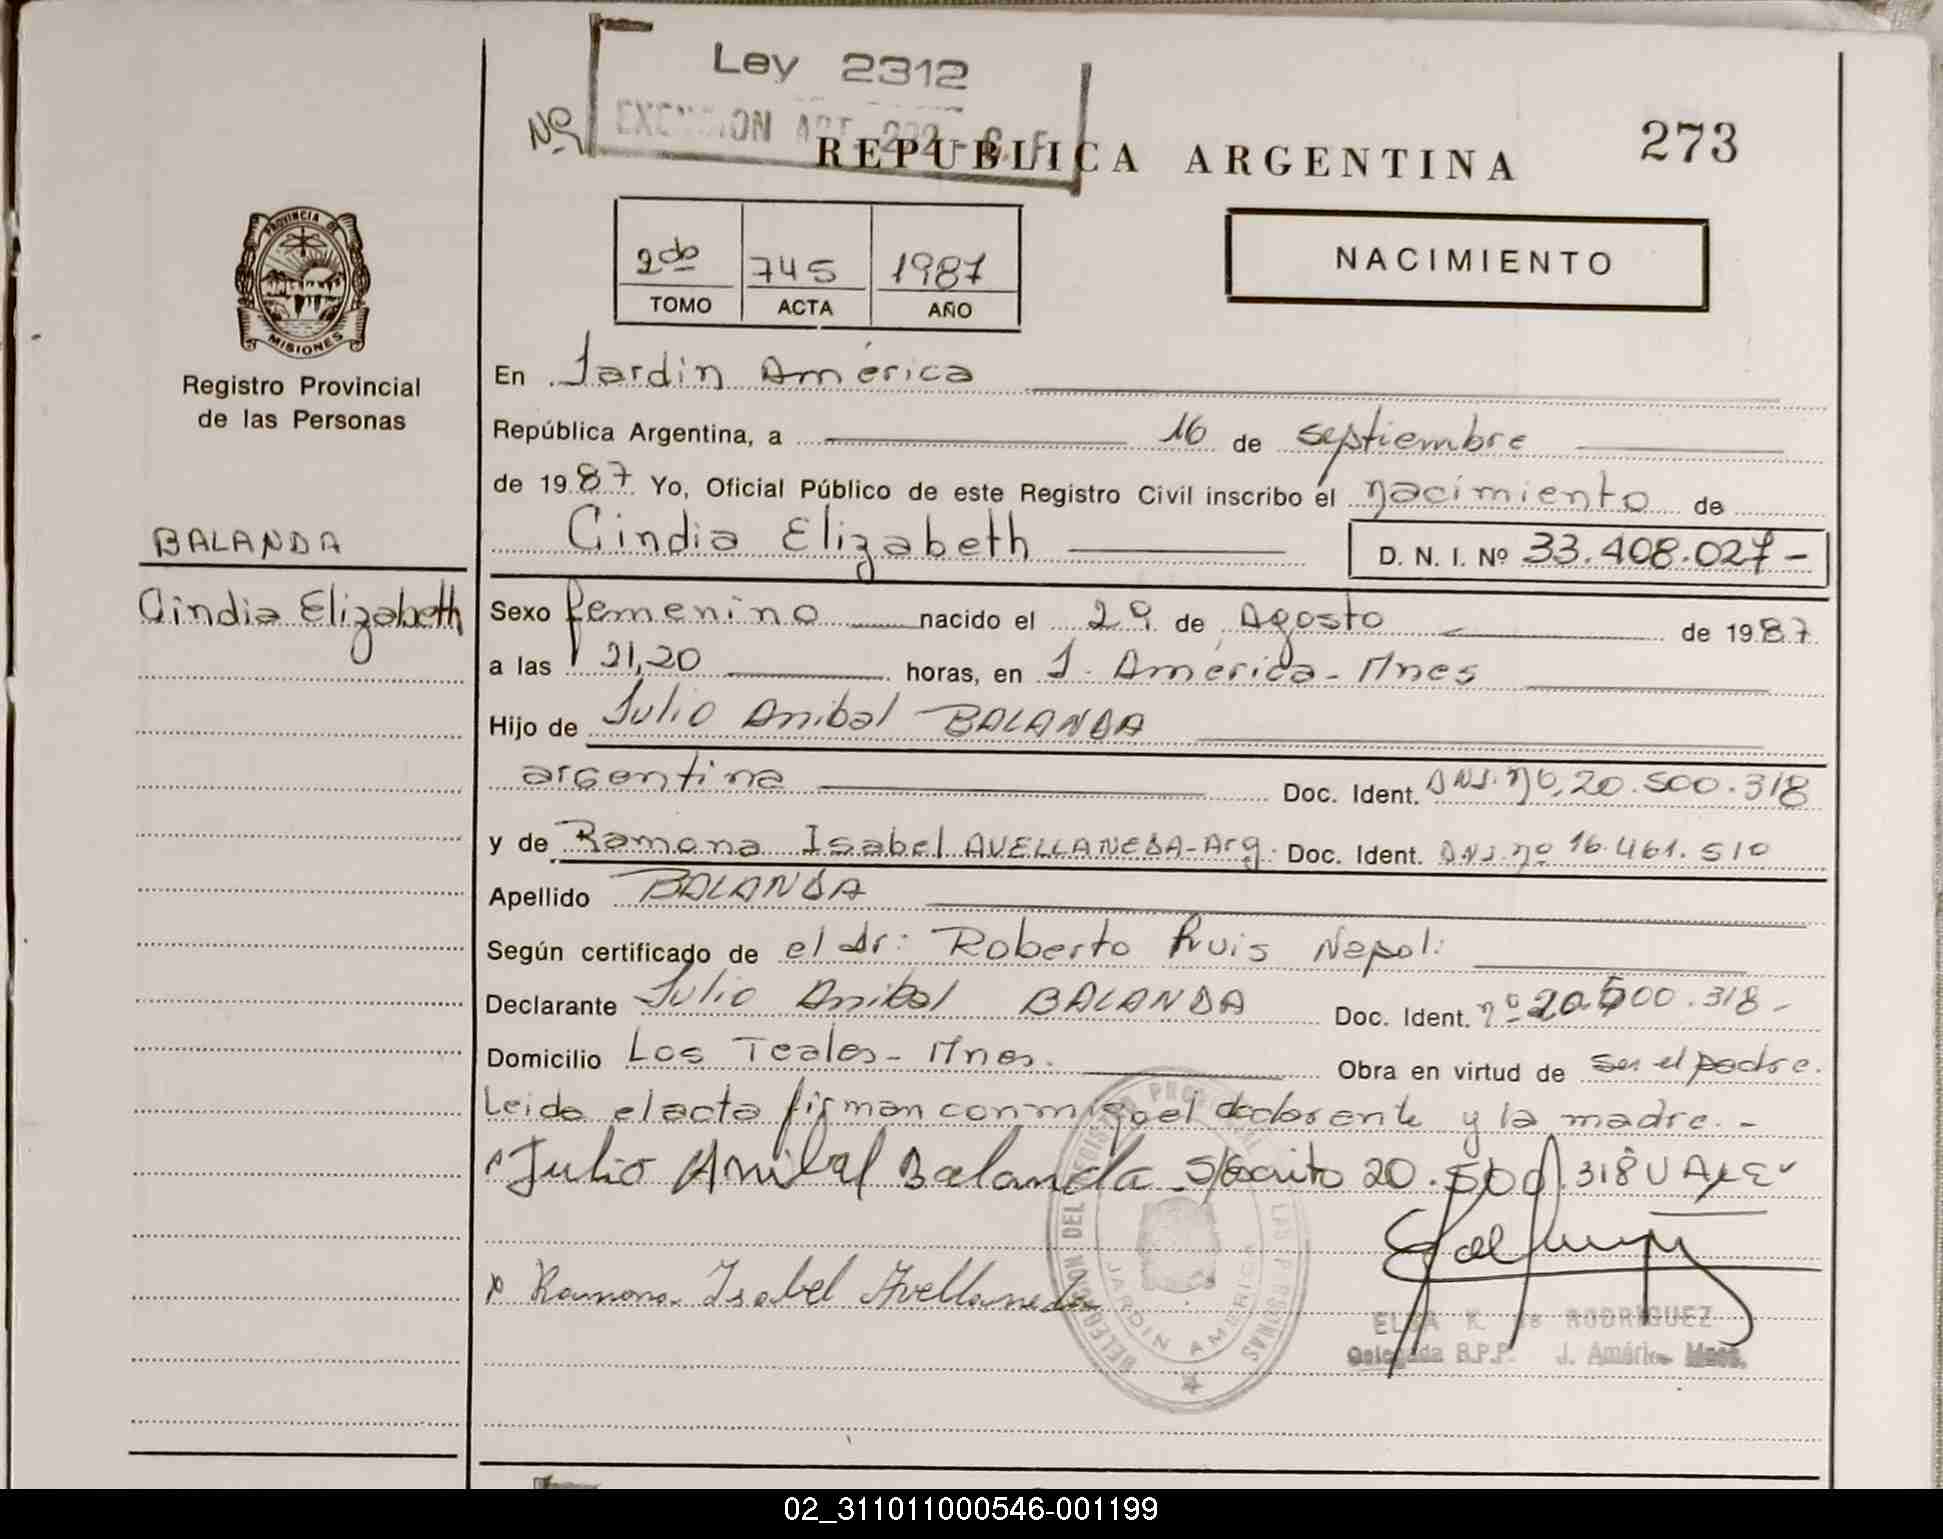 Ley 2312
Nº
REPUBLICA ARGENTINA
273
PROVINCIA DE
MISIONES
Registro Provincial
de las Personas
2do 745 1987
TOMO ACTA AÑO
NACIMIENTO
En Jardin América
República Argentina, a 16 de septiembre
de 1987 Yo, Oficial Público de este Registro Civil inscribo el nacimiento de
Cindia Elizabeth D. N. I. Nº 33.408.027-
BALANDA
Cindia Elizabeth
Sexo femenino nacido el 29 de Agosto de 1987
a las 21,20 horas, en J. América - Mnes
Hijo de Julio Anibal BALANDA
argentina Doc. Ident. DNI. nº, 20.500.318
y de Ramona Isabel AVELLANEDA-Arg. Doc. Ident. DNI. nº 16.461.510
Apellido BALANDA
Según certificado de el dr: Roberto Ruis Napoli
Declarante Julio Anibal BALANDA Doc. Ident. nº 20.500.318-
Domicilio Los Teales - Mnes. Obra en virtud de ser el padre.
Leida el acta firman conmigo el declarante y la madre.-
Julio Anibal Balanda S/Escrito 20.500.318 VALE
Ramona Isabel Avellaneda
DELEGACION DEL REGISTRO PROVINCIAL DE LAS PERSONAS
JARDIN AMERICA
ELSA K. de RODRIGUEZ
Delegada R.P.P. J. América Mnes.
02_311011000546-001199